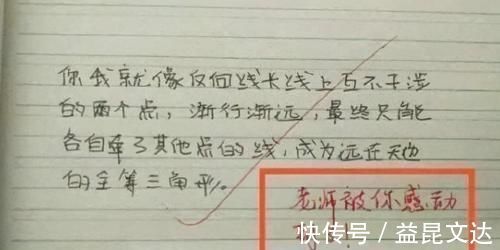 你我就像反向线长线上互不干涉
的两个点，渐行渐远，最终只能
各自牵了其他点的线，成为远在天边
的全等三角形。
老师被你感动
快传号 / 益昆文达